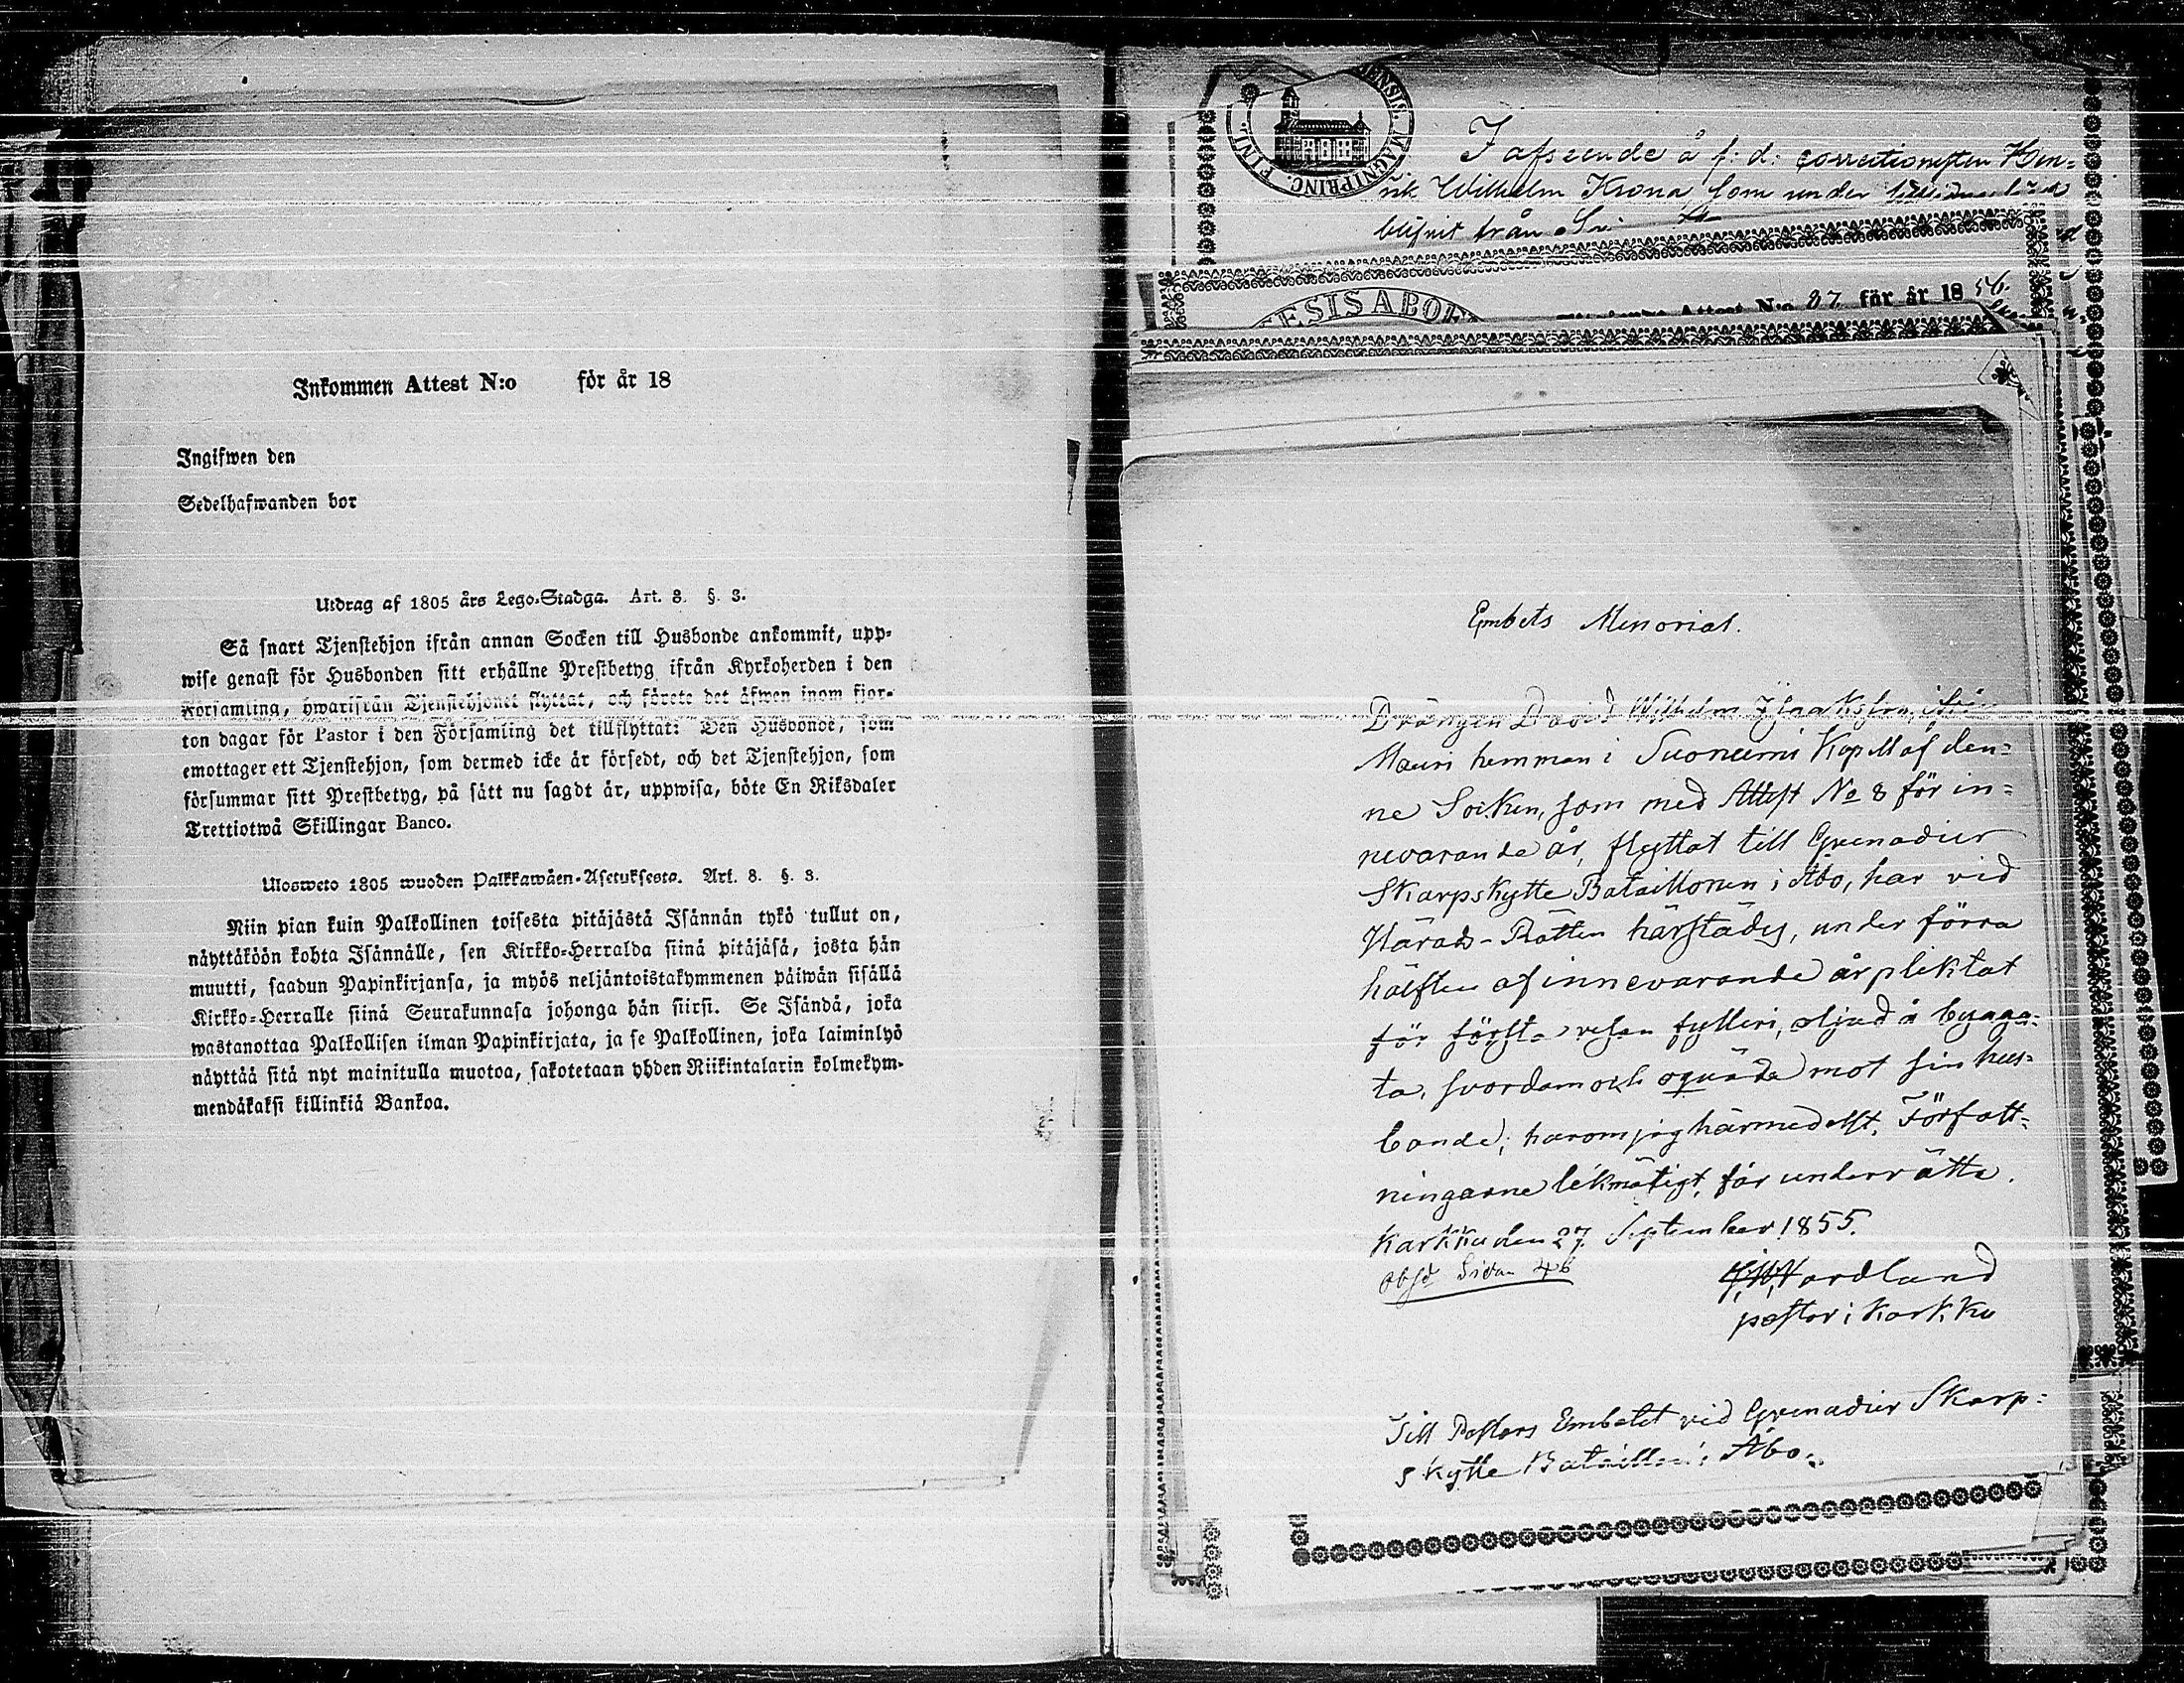 Inkommen Attest N:o för år 18
Ingifwen den
Sedelhafwanden bor
Utdrag af 1805 års Lego-Stadga. Art. 8. §. 3.
Så snart Tjenstehjon ifrån annan Socken till Husbonde ankommit, upp-
wise genast för Husbonden sitt erhållne Prestbetyg ifrån Kyrkoherden i den
Församling, hwarifrån Tjenstehjonet flyttat, och förete det äfwen inom fjor-
ton dagar för Pastor i den Församling det tillflyttat: Den Husbonde, som
emottager ett Tjenstehjon, som dermed icke är försedt, och det Tjenstehjon, som
försummar sitt Prestbetyg, på sätt nu sagdt är, uppwisa, böte En Riksdaler
Trettiotwå Skillingar Banco.
Ulosweto 1805 wuoden Palkkawäen-Asetuksesta. Art. 8. §. 3.
Niin pian kuin Palkollinen toisesta pitäjästä Isännän tykö tullut on,
näyttäköön kohta Isännälle, sen Kirkko-Herralda siinä pitäjäsä, josta hän
muutti, saadun Papinkirjansa, ja myös neljäntoistakymmenen päiwän sisällä
Kirkko-Herralle siinä Seurakunnasa johonga hän siirsi. Se Isändä, joka
wastanottaa Palkollisen ilman Papinkirjata, ja se Palkollinen, joka laiminlyö
näyttää sitä nyt mainitulla muotoa, sakotetaan yhden Riikintalarin kolmekym-
mendäkaksi killinkiä Bankoa.
ENSIS. MAGNI PRINC. FINL.
I afseende å f: d: correctionisten Hen-
rik Wilhelm Krona, som under
blifvit från
ESIS ABOE
Attest N:o 87 för år 1856.
Embets Memorial.
Drängen David Wilhelm Isaaksson, ifrån
Mauri hemman i Suoniemi Kapell af den-
ne Socken, som med Attest No 8 för in-
nevarande år, flyttat till Grenadier
Skarpskytte Bataillonen i Åbo, har vid
Härads-Rätten härstädes, under förra
hälften af innevarande år pliktat
för första resan fylleri, oljud å bygga-
ta, svordom och oqväde mot sin hus-
bonde; harom jag härmedelst, Författ-
ningarne likmätigt, får underrätta.
Karkku den 27 September 1855.
obsd Sidan 46
Nordlund
pastor i Karkku
Till Pastors Embetet vid Grenadier Skarp-
skytte Bataillon i Åbo.